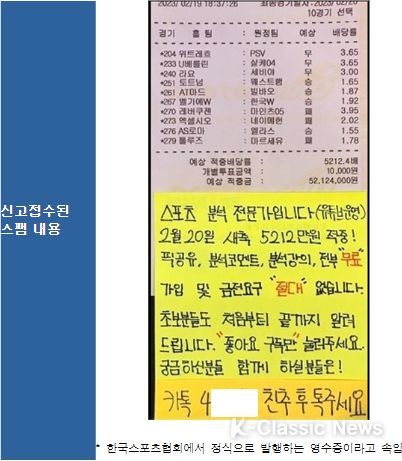 2023/02/19 18:37:26
10경기 선택
경기 홈 팀 : 원정팀 예상 배당률
*204 위트레흐 : PSV 무 3.65
*233 U베를린 : 살케04 무 3.65
*240 리요 : 세비야 무 3.00
*251 토트넘 : 웨스트햄 승 1.65
*261 AT마드 : 빌바오 승 1.87
*267 벨기에W : 한국W 승 1.92
*270 레버쿠젠 : 마인츠05 패 3.95
*273 엑셀시오 : 네이메헌 승 2.02
*276 AS로마 : 엘라스 승 1.55
*279 툴루즈 : 마르세유 패 1.78
예상 적중배당률 : 5212.4배
개별투표금액 : 10,000원
예상 적중금 : 52,124,000원
신고접수된
스팸 내용
스포츠 분석 전문가입니다
2월 20일 새축 5212만원 적중!
픽공유, 분석코멘트, 분석강의, 전부 "무료"
가입 및 금전요구 "절대" 없습니다.
초보분들도 처음부터 끝까지 알려
드립니다. "좋아요 구독만" 눌러주세요.
궁금하신분들 함께 하실분들은!
카톡 4 친추 후 톡주세요
K-Classic News
* 한국스포츠협회에서 정식으로 발행하는 영수증이라고 속임